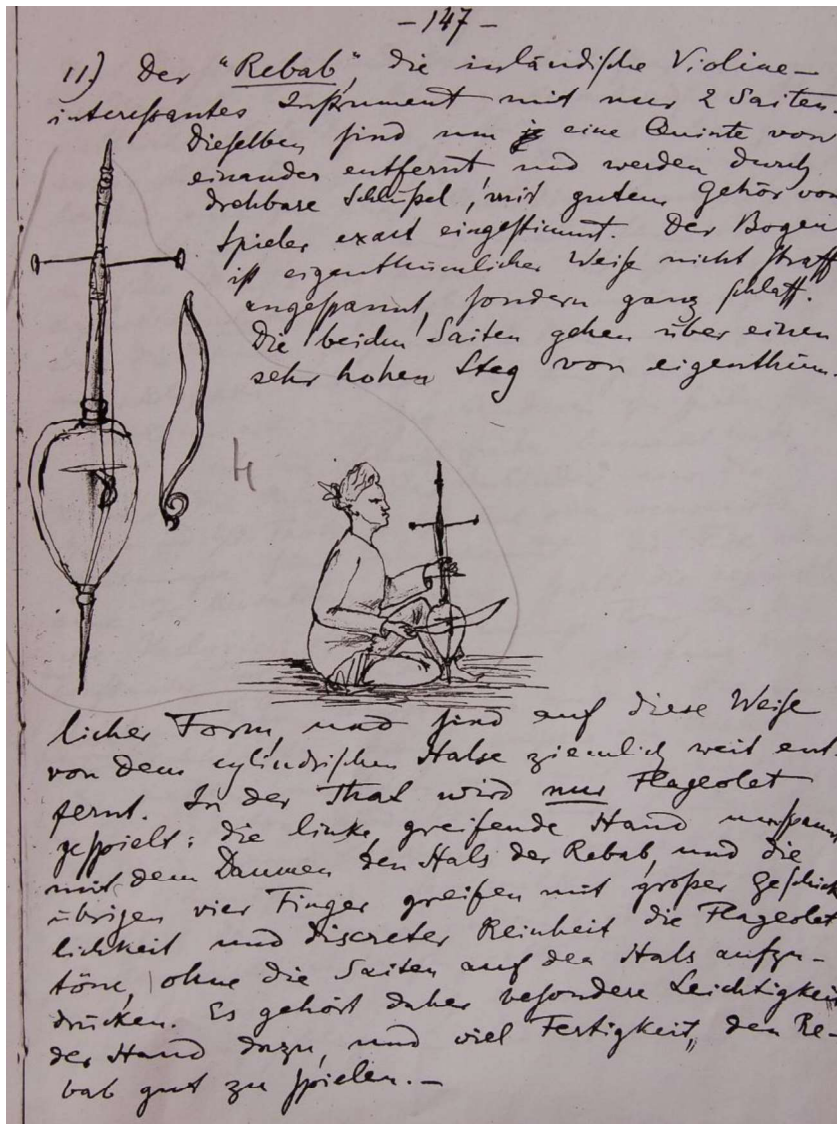 - 147 -
11.) Der "Rebab", die inländische Violine -
interessantes Instrument mit nur 2 Saiten.
Dieselben sind um eine Quinte von
einander entfernt, und werden durch
drehbare Schlüßel, mit gutem Gehör vom
Spieler exact eingestimmt. Der Bogen
ist eigenthümlicher Weise nicht straff
angespannt, sondern ganz schlaff.
Die beiden Saiten gehen über einen
sehr hohen Steg von eigenthüm-
licher Form, und sind auf diese Weise
von dem cylindrischen Halse ziemlich weit ent-
fernt. In der That wird nur Flageolet
gespielt: die linke, greifende Hand umspannt
mit dem Daumen den Hals der Rebab, und die
übrigen vier Finger greifen mit großer Geschick
lichkeit und discreter Reinheit die Flageolet
töne, ohne die Saiten auf den Hals aufzu-
drücken. Es gehört daher besondere Leichtigkeit
der Hand dazu, und viel Fertigkeit, den Re-
bab gut zu spielen. -